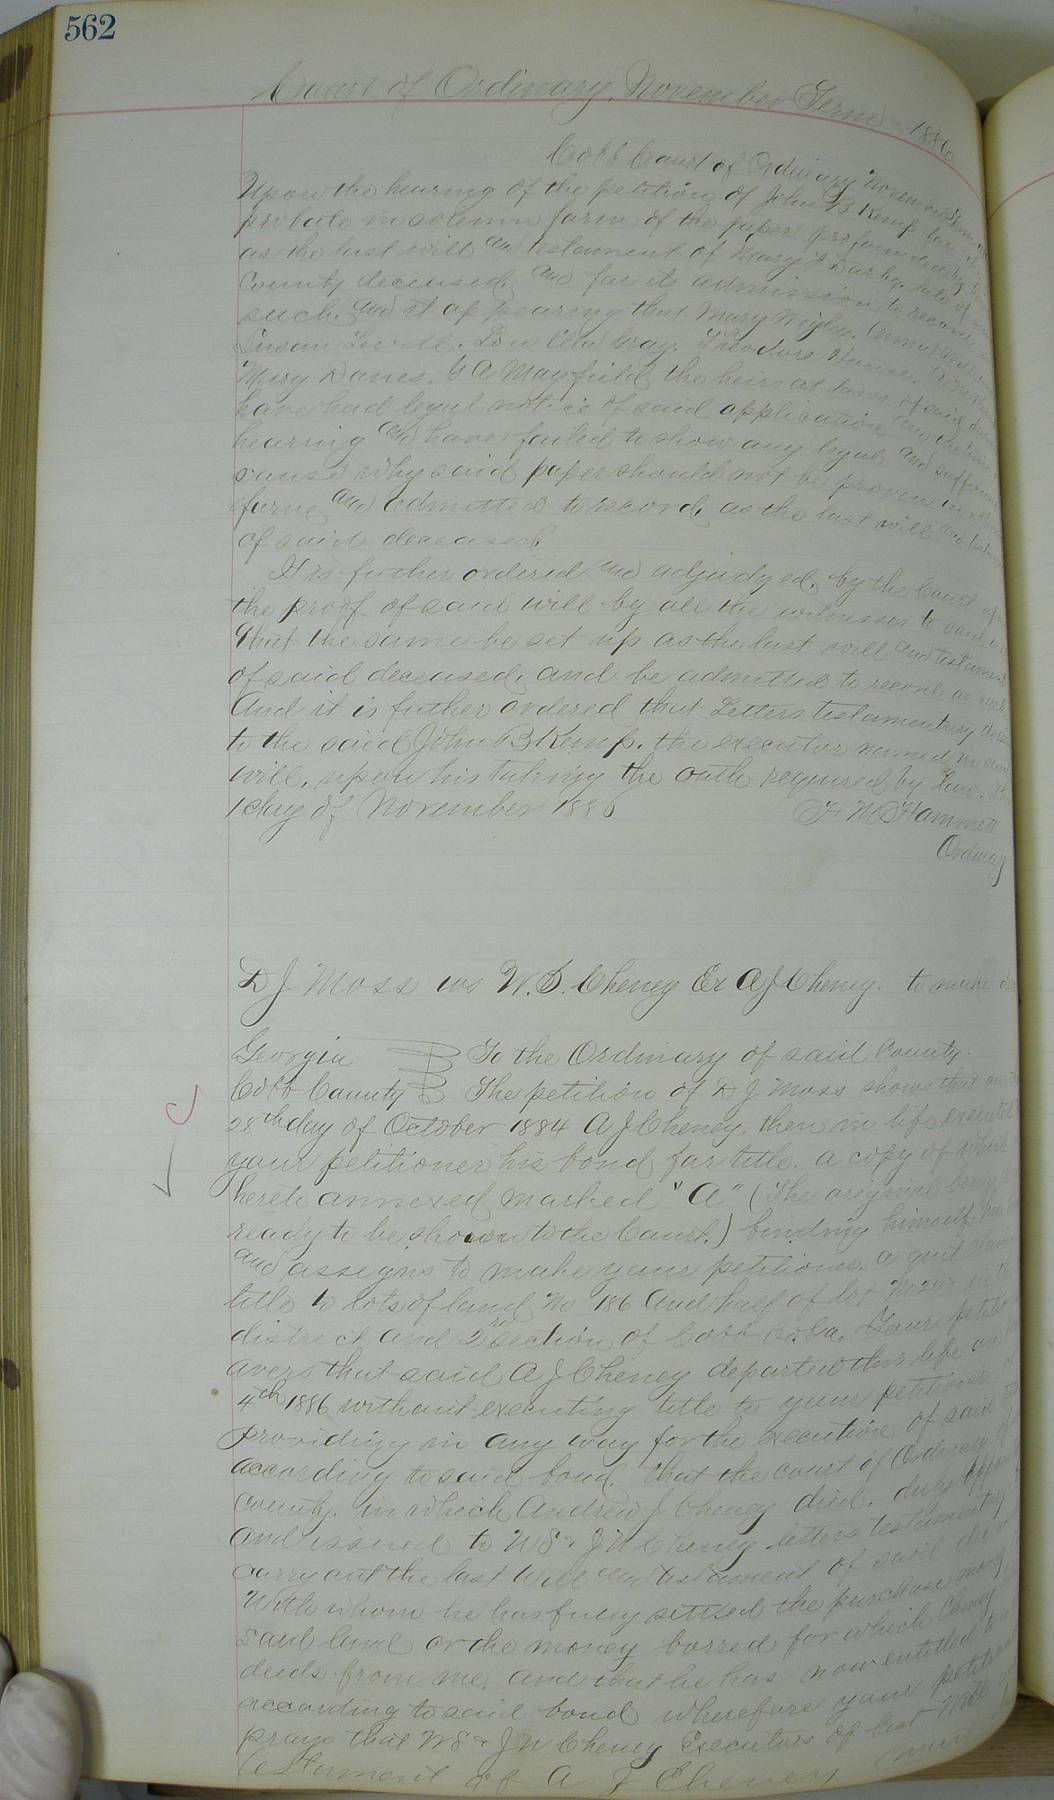 562
Court of Ordinary, November Term 1886
Cobb Court of Ordinary November Term
Upon the hearing of the petition of John B Kemp for
probate in solemn form of the paper propounded by
as the last will and testament of Mary late of
County deceased, and for its admission to record
such, and it appearing that Mary Wigley,
Susan Lovell. Lou Ann Gray. Theodore
Mary Danes. G A Mayfield the heirs at law of said
have had legal notice of said application and the time
hearing and have failed to show any legal and sufficient
cause why said paper should not be proven in
form, and admitted to record, as the last will and
of said deceased.
It is futher ordered and adjudged, by the Court
the proof of said will by all the witnesses to said
that the same be set up as the last will and testament
of said deceased, and be admitted to record as such
And it is futher ordered that Letters testamentary
to the said John B Kemp. the executor named in
will, upon his taking the oath required by Law.
1 day of November 1886 H M Hammett
Ordinary
D J Moss vs W. S. Cheney Ex A J Cheney. to make
Georgia To the Ordinary of said County.
Cobb County The petition of D J Moss shows that on
28th day of October 1884 A J Cheney, then in life executed
your petitioner his bond for title. a copy of which
hereto annexed marked "A" (The original being
ready to be shown to the Court.) binding himself
and assigns to make your petitioner. a quit claim
title to lots of land No 186 and half of lot
district and 2nd section of Cobb Co. Ga. Your
avers that said A J Cheney departed this life on
4th 1886 without executing title to your petitioner
providing in any way for the execution of said
according to said bond. that the court of Ordinary of
county. in which Andrew J Cheney died. duly
and issued to W S & J N Cheney letters testamentary
carry out the last Will and testament of said
With whom he has fully settled the purchase money
said land or the money borred for which Cheney
deeds from me, and that he has now entitled to
according to said bond wherefore your
prays that W S & J N Cheney Executors of last Will
testament of A J Cheney